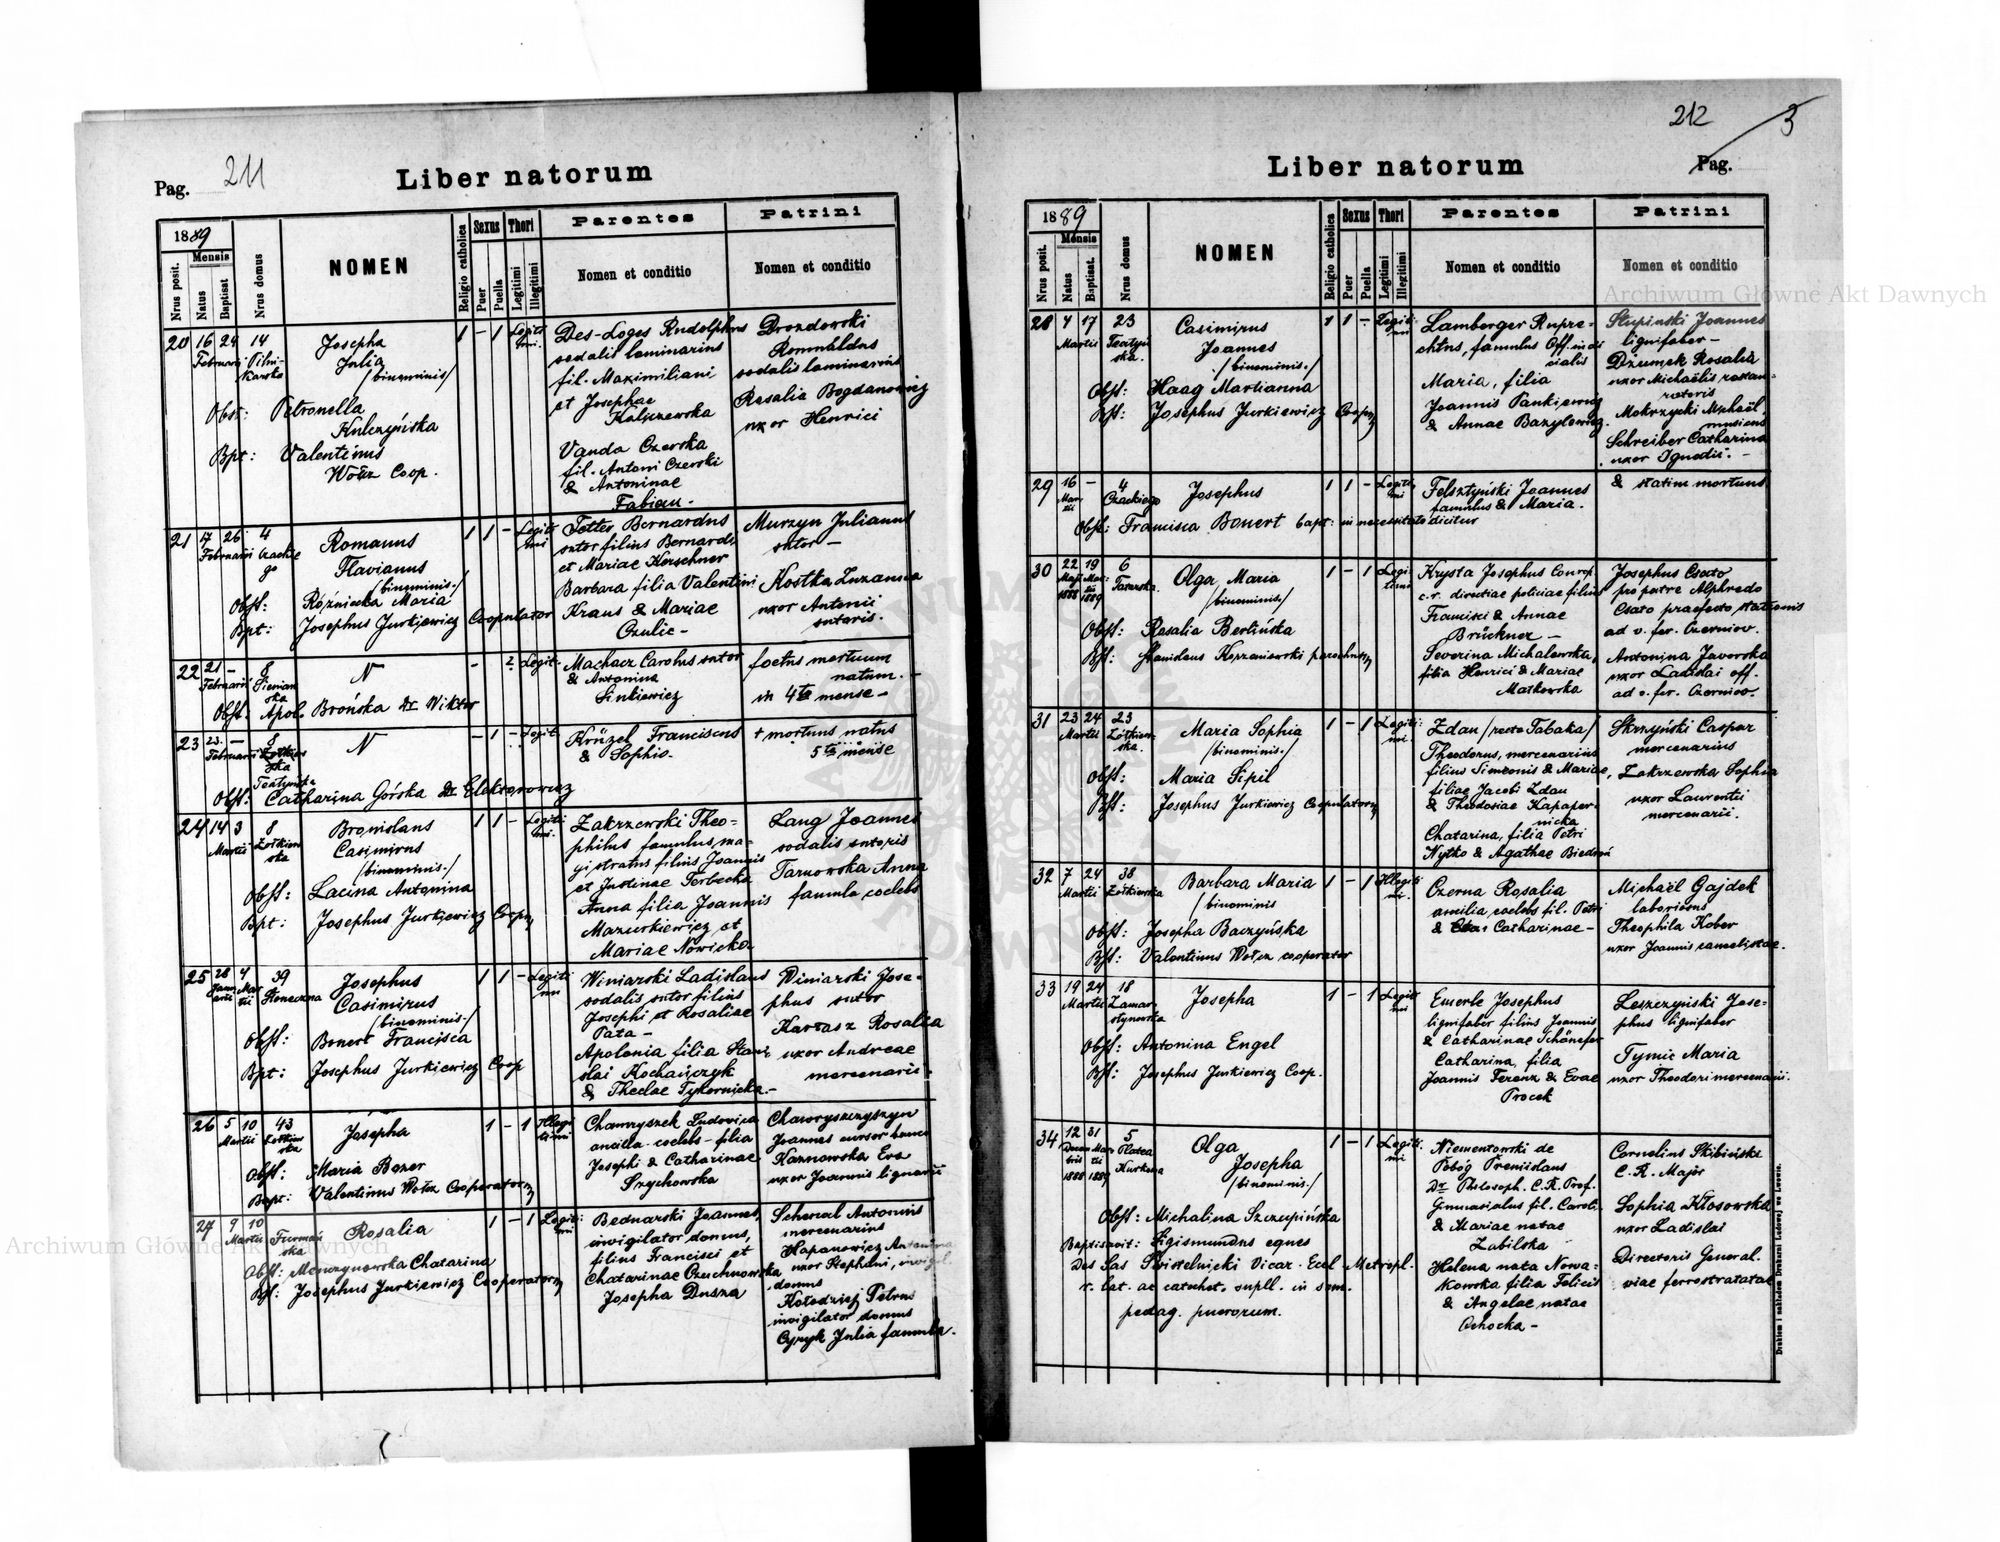 Pag. 211
Liber natorum
1889
Mensis
Nrus posit.
Natus
Baptisat
Nrus domus
NOMEN
Religio catholica
Sexus
Puer
Puella
Thori
Legitimi
Illegitimi
Parentes
Nomen et conditio
Patrini
Nomen et conditio
20 16 24 14 Josepha 1 – 1 Legiti Des-Loges Rudolphus Drozdowski
Februarii Julia mi. sodalis laminarius Romualdus
/binominis/ fil. Maximiliani sodalis laminarius
Obst: Petronella et Josephae Rosalia Bogdanowicz
Kulczyńska uxor Henrici
Bpt: Valentinus Vanda Czerska
Wołcz Coop. fil. Antoni Czerski
& Antoninae
Fabian –
21 17 26 4 Romanus 1 1 – Legiti Bernardus Murzyn Julianus
Februarii Czackie Flavianus mi sutor filius Bernardi sutor –
go /binominis./ et Mariae Kerschner
Obst: Róznicka Maria Barbara filia Valentini Kostka Zuzanna
Bpt: Josephus Jurkiewicz Cooperator Kraus & Mariae uxor Antonii
Czulic – sutoris.
22 21 – 8 N – 2 Legiti Machacz Carolus sutor foetus mortuum
Februarii & Antonina natum. –
ska Sinkiewicz in 4to mense –
Obst: Apol. Brońska Dr Wiktor
23 23. – 8 N – 1 – Legiti Krüzel Franciscus + mortuus natus
Februarii & Sophia. 5to mense
Obst: Catharina Górska Dr Elektorowicz
24 14 3 8 Bronislaus 1 1 – Legiti Zakrzewski Theo- Lang Joannes
Martii Żółkiew Casimirus mi. philus famulus ma- sodalis sutoris
ska /binominis./ gistratus filius Joannis Tarnowska Anna
Obst: Lacina Antonina et Justinae Terbecka famula coelebs
Bpt: Josephus Jurkiewicz Coop Anna filia Joannis
Mazurkiewicz et
Mariae Nowicka
25 28 4 39 Josephus 1 1 – Legiti Winiarski Ladislaus Winiarski Jose-
Mar Słoneczna Casimirus mi sodalis sutor filius phus sutor
tii /binominis./ Josephi et Rosaliae
Obst: Bonert Francisca Pata – Karasz Rosalia
Bpt: Josephus Jurkiewicz Coop Apolonia filia Stani uxor Andreae
slai Kochańczyk mercenarii
& Theclae Tykornicka –
26 5 10 43 Josepha 1 – 1 Illegi Chawryszek Ludovica Chawryszczyszyn
Martii Żółkiew timi ancilla coelebs – filia Joannes cursor
ska Josephi & Catharinae Kaznowska Eva
Obst: Maria Bozer Szychowska uxor Joannis lignarii
Bapt: Valentinus Wołcz Cooperator
27 9 10 Furmań Rosalia 1 – 1 Legiti Bednarski Joannes, Schenal Antonius
Martii ska mi invigilator domus, mercenarius
Obst: Chatarina filius Francisci et Hapanowicz Antonina
Bf: Josephus Jurkiewicz Cooperator Chatarinae Czuchnowska uxor Stephani,
Josepha Dusza domus
Kołodziej Petrus
invigilator domus
Julia famula.
212 3
Liber natorum
Pag.
1889
Mensis
Nrus posit.
Natus
Baptisat.
Nrus domus
NOMEN
Religio catholica
Sexus
Puer
Puella
Thori
Legitimi
Illegitimi
Parentes
Nomen et conditio
Patrini
Nomen et conditio
28 4 17 23 Casimirus 1 1 – Legiti Lamberger Rupre- Słupinski Joannes
Martii Joannes mi chtus, famulus lignifaber –
ska. /binominis./ Dżumek Rosalia
Obst: Haag Marianna Maria, filia uxor Michaëlis restau-
Bf: Josephus Jurkiewicz Coop Joannis Pankiewicz ratoris
& Annae Bazylewicz. Mokrzycki Michaël,
musicus
Schreiber Catharina
uxor Ignatii. –
29 16 – 4 Josephus 1 1 – Legiti Felsztyński Joannes & statim mortuus
Mar Czackiego mi famulus & Maria.
tii
Obst: Francisca Bonert bapt: in necessitate dicitur
30 22 19 6 Olga Maria 1 – 1 Legi Krysta Josephus Josephus Csato
Maji Mar /binominis./ timi c. r. directiae policiae filius pro patre Alphredo
1888 1889 Francisci & Annae Csato praefecto stationis
Obst: Rosalia Berlińska Brückner – ad v. fer. Czerniov.
Bf: Stanislaus parochus Severina Michalewska Antonina Javorska
filia Henrici & Mariae uxor Ladislai off.
Małkowska ad v. fer. Czerniov.
31 23 24 23 Maria Sophia 1 – 1 Legiti Zdan /recte Tabaka/ Skrzyński Caspar
Martii Żółkiew /binominis./ mi. Theodorus, mercenarius mercenarius
ska. filius Simeonis & Mariae,
Obst: Maria Sipil filiae Jacobi Zdan Zakrzewska Sophia
Bf: Josephus Jurkiewicz Cooperator & Theodosiae uxor Laurentii
nicka mercenarii.
Chatarina, filia Petri
Nytko & Agathae
32 7 24 38 Barbara Maria 1 – 1 Illegiti Czerna Rosalia Michaël Gajdek
Martii Żółkiewska /binominis mi. ancilla coelebs fil. Petri laboriosus
Obst: Josepha Baczyńska & Catharinae – Theophila Kober
Bf: Valentinus Wołcz cooperator uxor Joannis
33 19 24 18 Josepha 1 – 1 Legiti Emerle Josephus Leszczyński Jose-
Martii Zamar mi lignifaber filius Joannis phus lignifaber
stynowska & Catharinae Schönefer
Obst: Antonina Engel Catharina, filia Tymic Maria
Bf: Josephus Jurkiewicz Coop. Joannis Ferenz & Evae uxor Theodori mercenarii.
Procek
34 12 31 5 Olga 1 – 1 Legiti Niementowski de Cornelius Skibiński
Decem Mar Platea Josepha mi Pobóg Premislaus C. R. Major
bris tii Kurkowa /binominis./ Dr Philosoph. C. R. Prof.
1888 1889 Gimnasialus fil. Caroli Sophia Kłosowska
Obst: Michalina Szczupińska & Mariae natae uxor Ladislai
Baptisavit: Sigismundus eques Zabilska Directoris General.
Das Sas Swistelnicki Vicar. Eccl. Metropl. Helena nata Nowa- viae ferrostratatae
r. lat. ac catechet. suppl. in sem. kowska filia Felicis
pedag. puerorum. & Angelae natae
Ochocka –
Drukiem i nakładem Drukarni Ludowej we Lwowie.
Archiwum Główne Akt Dawnych
Archiwum Główne Akt Dawnych